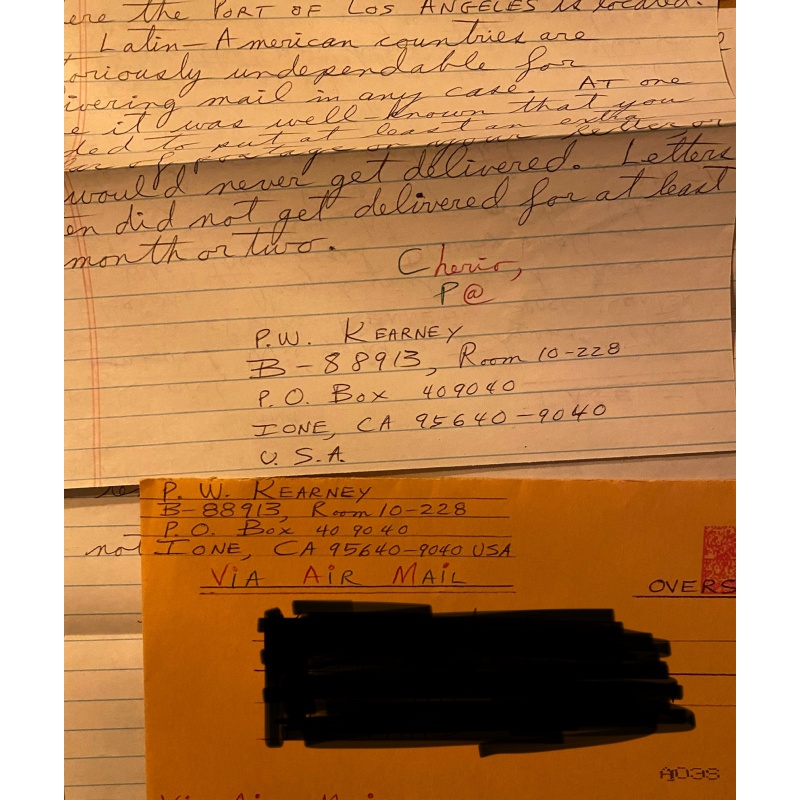 ere the PORT OF LOS ANGELES is located.
Latin-American countries are
oriously undependable for
ivering mail in any case. AT one
e it was well-known that you
ded to put at least an extra
of postage on your letter or
would never get delivered. Letters
en did not get delivered for at least
month or two.
Cherio,
P@
P.W. KEARNEY
B-88913, Room 10-228
P.O. Box 409040
IONE, CA 95640-9040
U.S.A.
P. W. KEARNEY
B-88913, Room 10-228
P.O. Box 409040
not
IONE, CA 95640-9040 USA
VIA AIR MAIL
OVERS
A03S
Via Air Mail